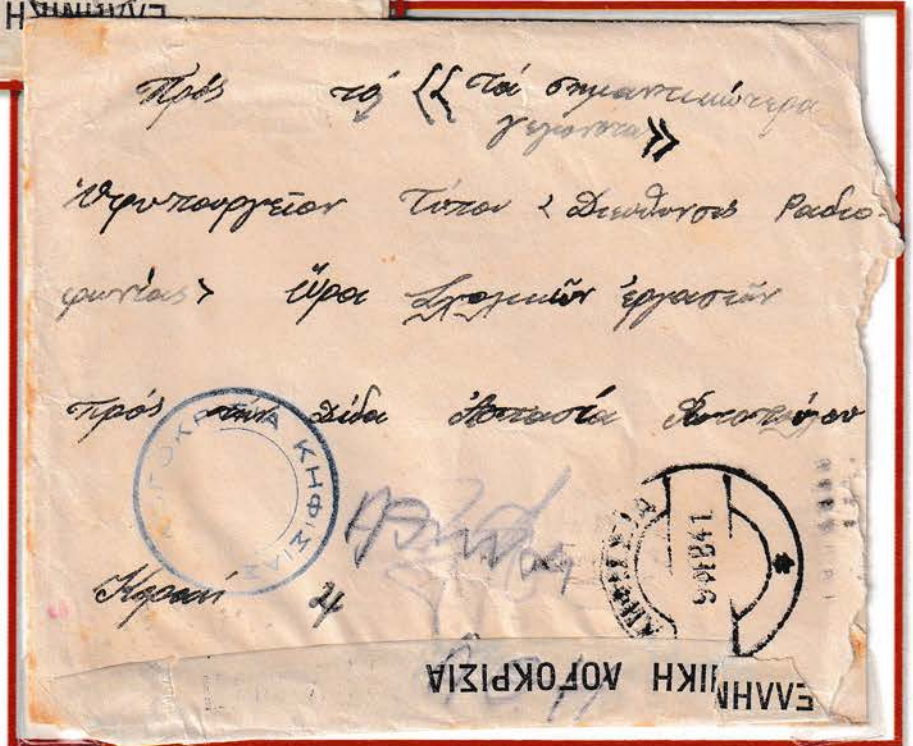 Πρὸς τὸ << Τὰ σημαντικώτερα
γεγονότα >>
Ὑφυπουργεῖον Τύπου < Διεύθυνσις Ραδιο-
φωνίας > ὥρα Σχολικῶν ἐργασιῶν
Πρὸς τὴν Δίδα Ἀσπασία
ΛΟΓΟΚΡΙΣΙΑ ΚΗΦΙΣΙΑΣ
ΚΗΦΙΣΙΑ
9 ΦΕΒ 41
4
ΕΛΛΗΝΙΚΗ ΛΟΓΟΚΡΙΣΙΑ